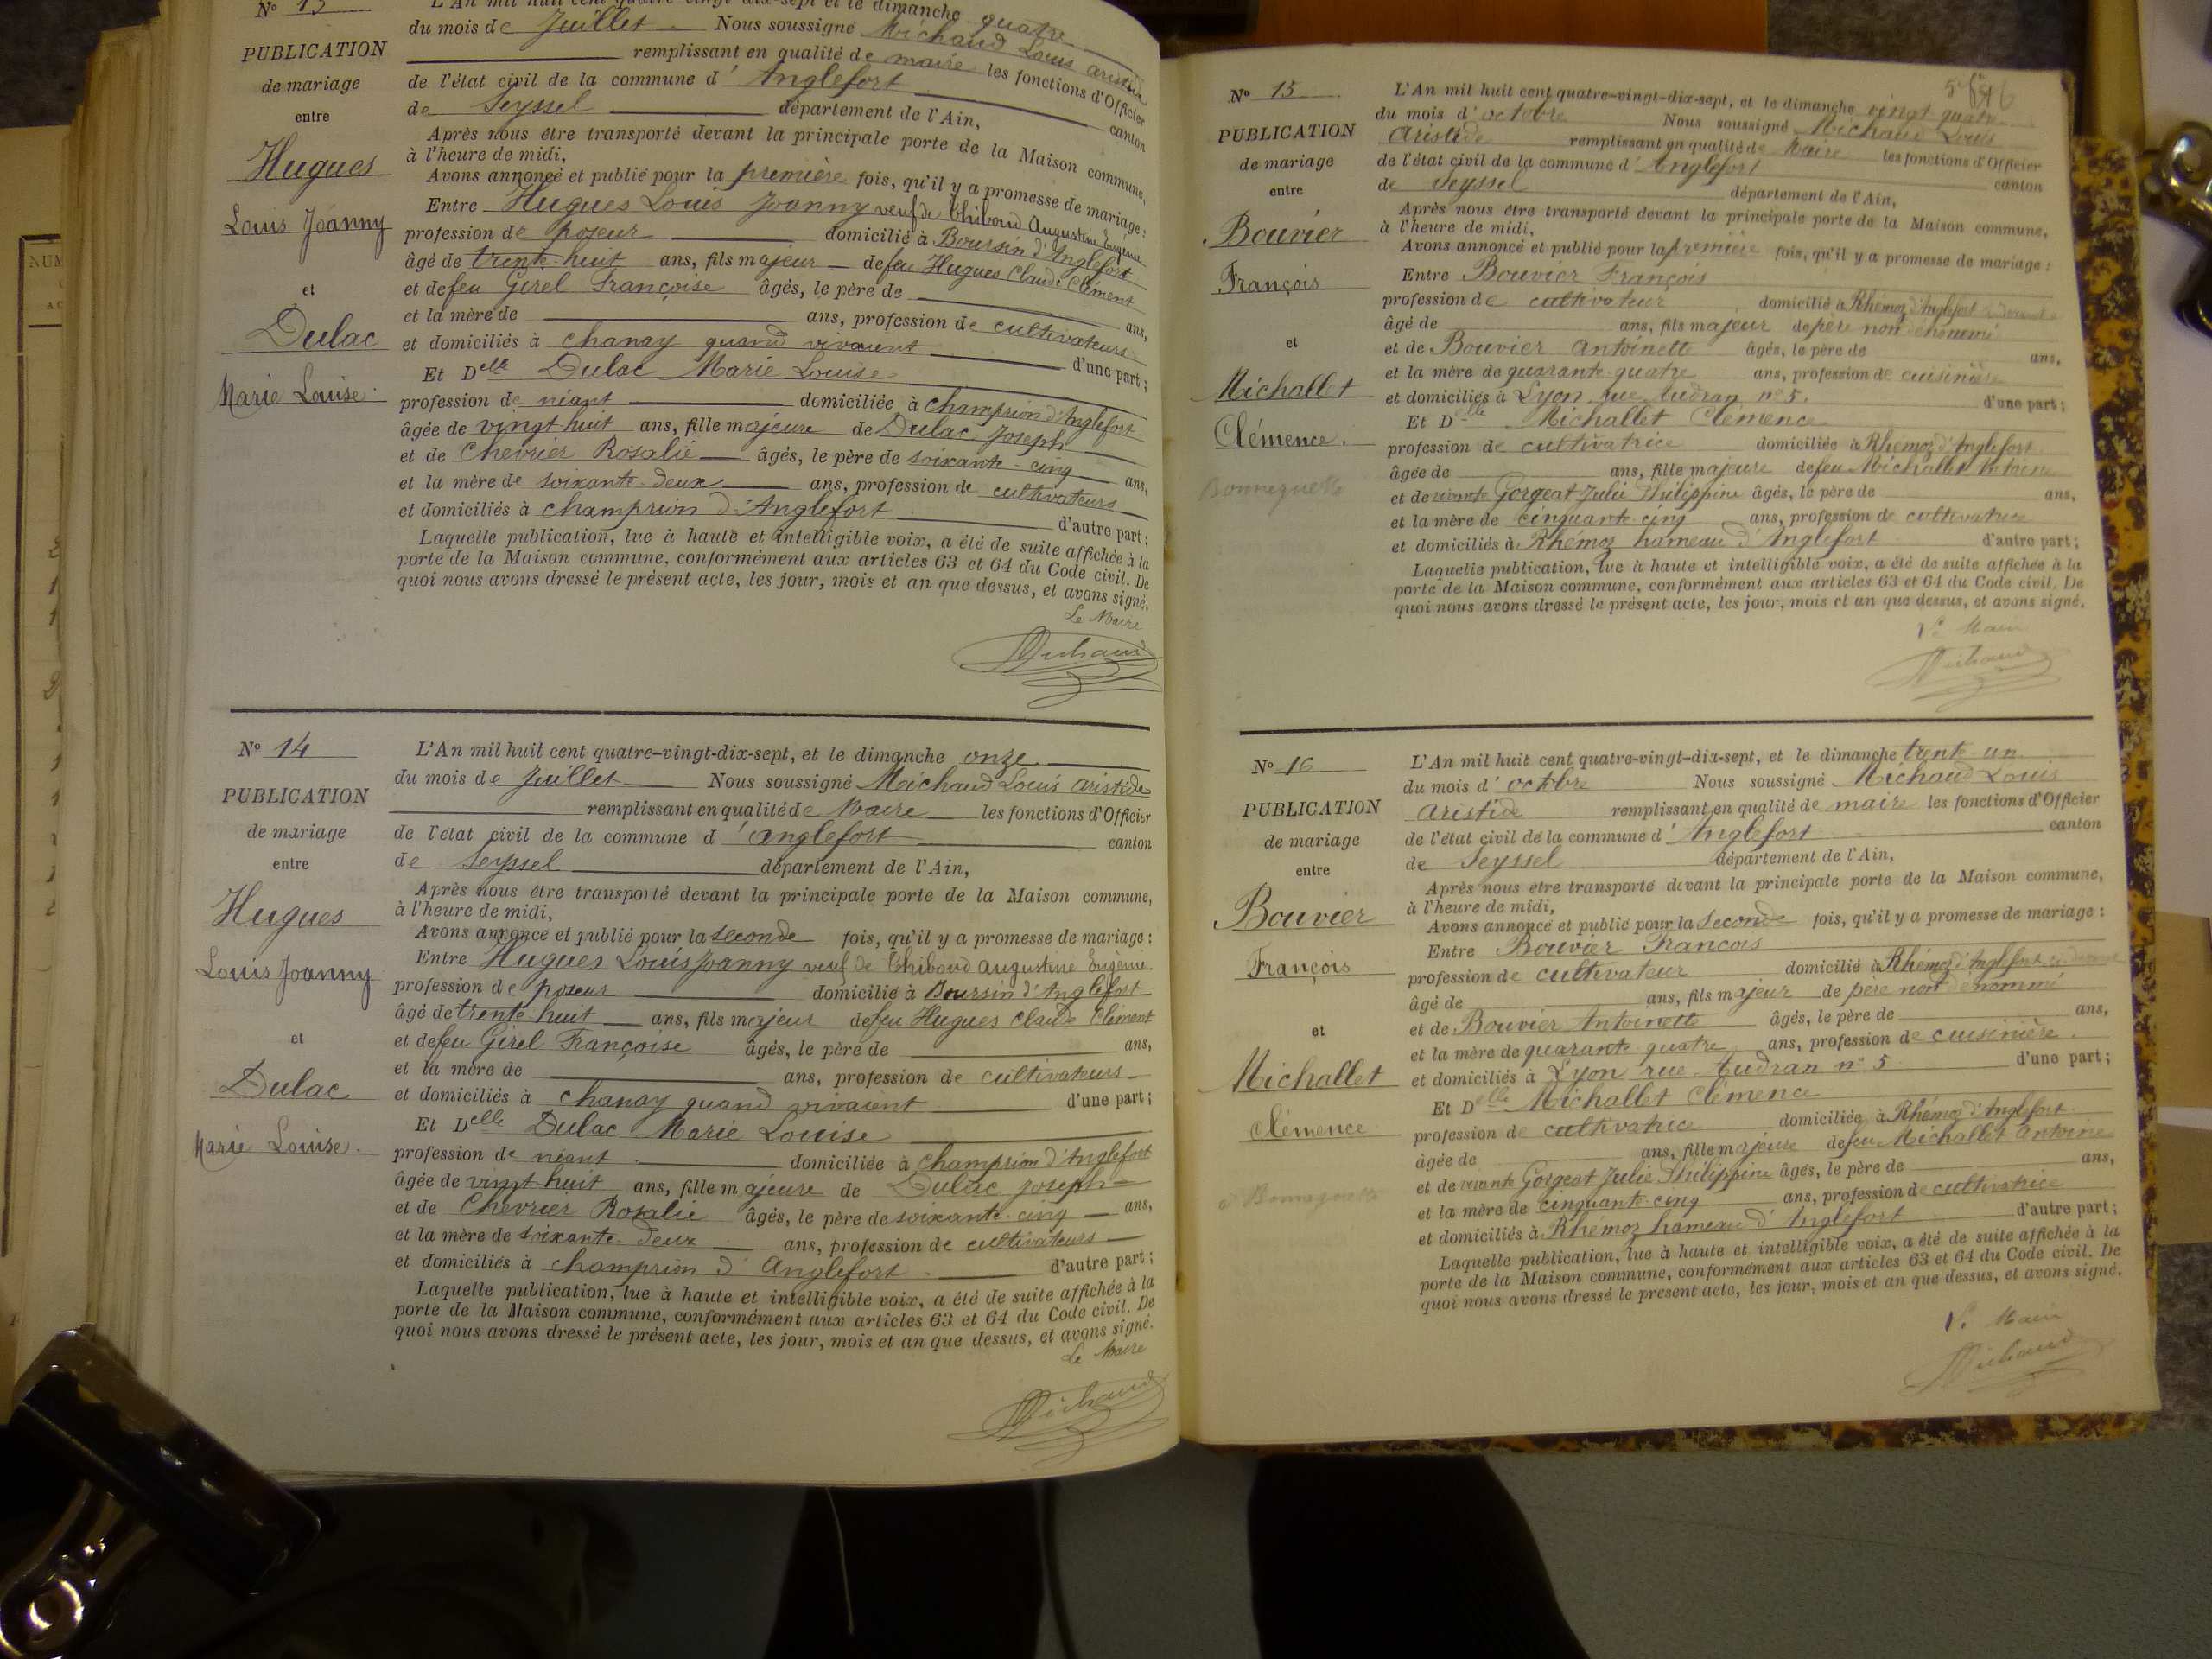 N° 13
L'An mil huit cent quatre-vingt-dix-sept et le dimanche quatre
du mois de Juillet Nous soussigné Michaud Louis aristide
PUBLICATION
remplissant en qualité de maire les fonctions d'Officier
de mariage
de l'état civil de la commune d'Anglefort canton
entre
de Seyssel département de l'Ain,
Après nous être transporté devant la principale porte de la Maison commune,
à l'heure de midi,
Hugues
Avons annoncé et publié pour la première fois, qu'il y a promesse de mariage :
Entre Hugues Louis Joanny veuf de Thiboud Augustine Eugénie
Louis Joanny
profession de poseur domicilié à Boursin d'Anglefort
âgé de trente-huit ans, fils majeur de feu Hugues Claude Clément
et
et de feu Girel Françoise âgés, le père de ans,
et la mère de ans, profession de cultivateurs
Dulac
et domiciliés à chanay quand vivaient d'une part ;
Et Delle Dulac Marie Louise
Marie Louise.
profession de néant domiciliée à champrion d'Anglefort
âgée de vingt huit ans, fille majeure de Dulac Joseph
et de Chevrier Rosalie âgés, le père de soixante-cinq ans,
et la mère de soixante-deux ans, profession de cultivateurs
et domiciliés à champrion d'Anglefort d'autre part ;
Laquelle publication, lue à haute et intelligible voix, a été de suite affichée à la
porte de la Maison commune, conformément aux articles 63 et 64 du Code civil. De
quoi nous avons dressé le présent acte, les jour, mois et an que dessus, et avons signé.
Le Maire
Michaud
N° 14
L'An mil huit cent quatre-vingt-dix-sept, et le dimanche onze
du mois de Juillet Nous soussigné Michaud Louis aristide
PUBLICATION
remplissant en qualité de Maire les fonctions d'Officier
de mariage
de l'état civil de la commune d'anglefort canton
entre
de Seyssel département de l'Ain,
Après nous être transporté devant la principale porte de la Maison commune,
à l'heure de midi,
Hugues
Avons annoncé et publié pour la seconde fois, qu'il y a promesse de mariage :
Entre Hugues Louis Joanny veuf de Thiboud augustine Eugénie
Louis Joanny
profession de poseur domicilié à Boursin d'Anglefort
âgé de trente-huit ans, fils majeur de feu Hugues Claude Clément
et
et de feu Girel Françoise âgés, le père de ans,
et la mère de ans, profession de cultivateurs
Dulac
et domiciliés à chanay quand vivaient d'une part ;
Et Delle Dulac Marie Louise
Marie Louise.
profession de néant domiciliée à champrion d'Anglefort
âgée de vingt-huit ans, fille majeure de Dulac Joseph
et de Chevrier Rosalie âgés, le père de soixante-cinq ans,
et la mère de soixante-deux ans, profession de cultivateurs
et domiciliés à champrion d'Anglefort d'autre part ;
Laquelle publication, lue à haute et intelligible voix, a été de suite affichée à la
porte de la Maison commune, conformément aux articles 63 et 64 du Code civil. De
quoi nous avons dressé le présent acte, les jour, mois et an que dessus, et avons signé.
Le Maire
Michaud
N° 15
L'An mil huit cent quatre-vingt-dix-sept, et le dimanche vingt quatre
du mois d'octobre Nous soussigné Michaud Louis
PUBLICATION
Aristide remplissant en qualité de Maire les fonctions d'Officier
de mariage
de l'état civil de la commune d'Anglefort canton
entre
de Seyssel département de l'Ain,
Après nous être transporté devant la principale porte de la Maison commune,
à l'heure de midi,
Bouvier
Avons annoncé et publié pour la première fois, qu'il y a promesse de mariage :
Entre Bouvier François
François
profession de cultivateur domicilié à Rhémoz d'Anglefort
âgé de ans, fils majeur de père non dénommé
et
et de Bouvier Antoinette âgés, le père de ans,
et la mère de quarante quatre ans, profession de cuisinière
Michallet
et domiciliés à Lyon rue Audran n° 5. d'une part ;
Et Delle Michallet Clémence
Clémence.
profession de cultivatrice domiciliée à Rhémoz d'Anglefort
âgée de ans, fille majeure de feu Michallet Antoine
et de vivante Gorgeat Julie Philippine âgés, le père de ans,
et la mère de cinquante-cinq ans, profession de cultivatrice
et domiciliés à Rhémoz hameau d'Anglefort d'autre part ;
Laquelle publication, lue à haute et intelligible voix, a été de suite affichée à la
porte de la Maison commune, conformément aux articles 63 et 64 du Code civil. De
quoi nous avons dressé le présent acte, les jour, mois et an que dessus, et avons signé.
Le Maire
Michaud
N° 16
L'An mil huit cent quatre-vingt-dix-sept, et le dimanche trente-un
du mois d'octobre Nous soussigné Michaud Louis
PUBLICATION
aristide remplissant en qualité de maire les fonctions d'Officier
de mariage
de l'état civil de la commune d'Anglefort canton
entre
de Seyssel département de l'Ain,
Après nous être transporté devant la principale porte de la Maison commune,
à l'heure de midi,
Bouvier
Avons annoncé et publié pour la seconde fois, qu'il y a promesse de mariage :
Entre Bouvier François
François
profession de cultivateur domicilié à Rhémoz d'Anglefort
âgé de ans, fils majeur de père non dénommé
et
et de Bouvier Antoinette âgés, le père de ans,
et la mère de quarante quatre ans, profession de cuisinière
Michallet
et domiciliés à Lyon rue Audran n° 5 d'une part ;
Et Delle Michallet Clémence
Clémence
profession de cultivatrice domiciliée à Rhémoz d'Anglefort
âgée de ans, fille majeure de feu Michallet antoine
et de vivante Gorgeat Julie Philippine âgés, le père de ans,
et la mère de cinquante-cinq ans, profession de cultivatrice
et domiciliés à Rhémoz hameau d'Anglefort d'autre part ;
Laquelle publication, lue à haute et intelligible voix, a été de suite affichée à la
porte de la Maison commune, conformément aux articles 63 et 64 du Code civil. De
quoi nous avons dressé le présent acte, les jour, mois et an que dessus, et avons signé.
Le Maire
Michaud